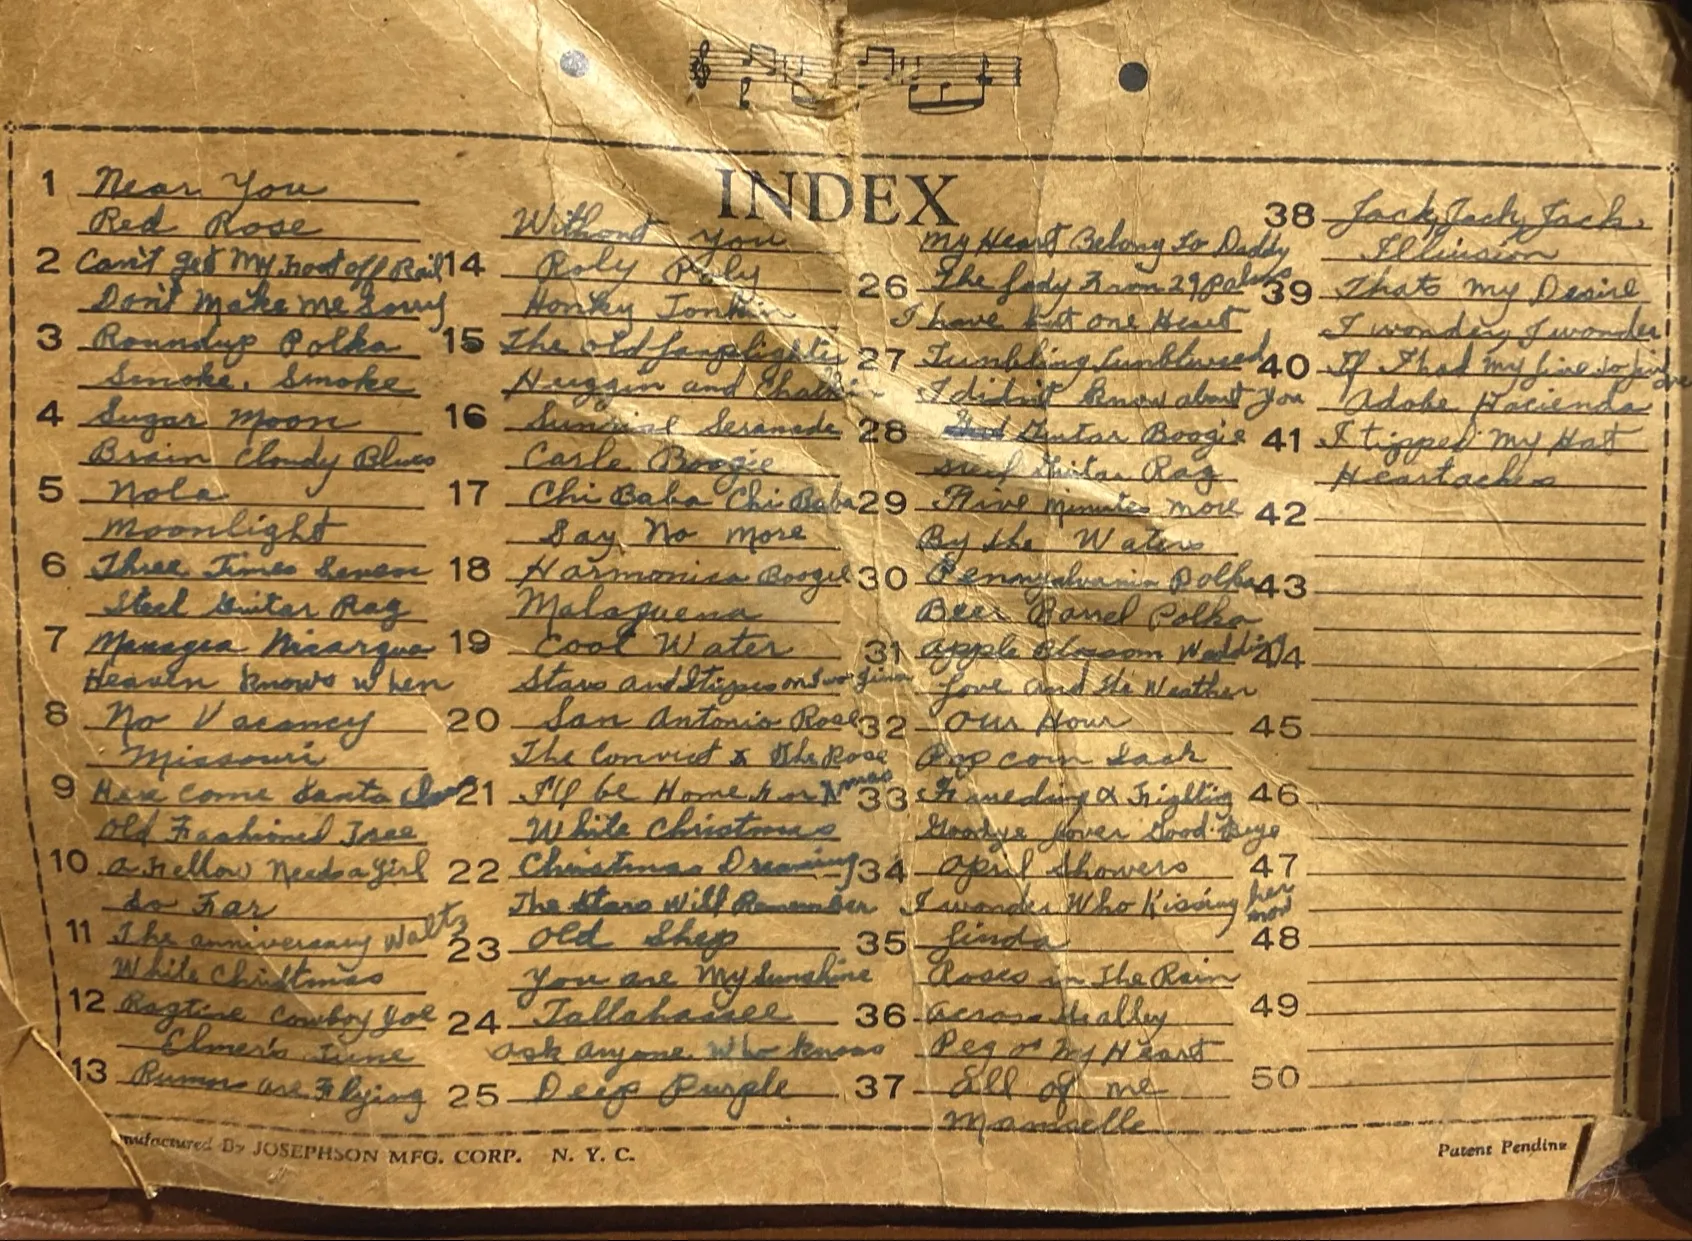 INDEX
1 Near You
Red Rose
2 Can't get My Foot off Rail
Don't Make Me Sorry
3 Roundup Polka
Smoke, Smoke
4 Sugar Moon
Brain Cloudy Blues
5 Nola
Moonlight
6 Three Times Seven
Steel Guitar Rag
7 Managua Nicaragua
Heaven knows when
8 No Vacancy
Missouri
9 Here come Santa Claus
Old Fashioned Tree
10 a Fellow Needs a Girl
So Far
11 The anniversary Waltz
White Christmas
12 Ragtime Cowboy Joe
Elmer's Tune
13 Rumors are Flying
Without You
14 Roly Poly
Honky Tonkin
15 The old Lamplighter
Huggin and Chalkin
16 Sunrise Serenade
Carle Boogie
17 Chi Baba Chi Baba
Say No More
18 Harmonica Boogie
Malaguena
19 Cool Water
Stars and Stripes on Iwo Jima
20 San Antonio Rose
The Convict & The Rose
21 I'll be Home For Xmas
White Christmas
22 Christmas Dreaming
The Stars Will Remember
23 Old Shep
You are My Sunshine
24 Tallahassee
ask anyone Who knows
25 Deep Purple
My Heart Belong to Daddy
26 The Lady From 29 palms
I have but one Heart
27 Tumbling Tumbleweed
I didn't Know about You
28 Guitar Boogie
Steel Guitar Rag
29 Five Minutes More
By the Waters
30 Pennsylvania Polka
Beer Barrel Polka
31 Apple Blossom Wedding
Love and the Weather
32 Our Hour
Pop corn Sack
33 Feudin & Fighting
Goodye Lover Good-Buye
34 April Showers
I wonder Who Kissing her now
35 Linda
Roses in The Rain
36 across the alley
Peg o My Heart
37 All of me
Mamselle
38 Jack, Jack, Jack
Illusion
39 Thats My Desire
I wonder, I wonder
40 If I had My Life to live over
Adobe Hacienda
41 I tipped My Hat
Heartaches
42
43
44
45
46
47
48
49
50
nufactured By JOSEPHSON MFG. CORP. N. Y. C.
Patent Pending